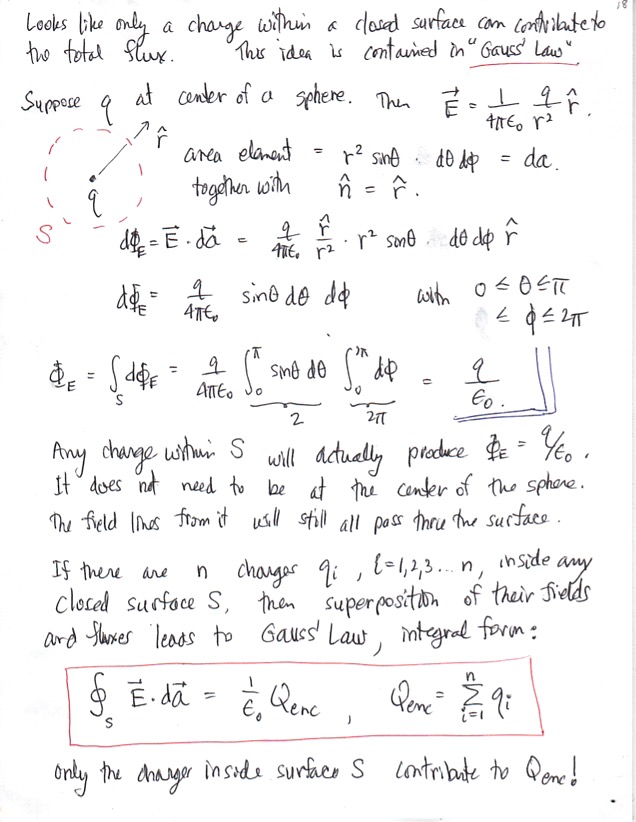 18
Looks like only a charge within a closed surface can contribute to
the total flux. This idea is contained in "Gauss' Law".
Suppose q at center of a sphere. Then E⃗ = 1/(4πϵ₀) q/r² r̂.
r̂
q
S
area element = r² sinθ dθ dϕ = da.
together with n̂ = r̂.
dΦ_E = E⃗ · da⃗ = q/(4πϵ₀) r̂/r² · r² sinθ dθ dϕ r̂
dΦ_E = q/(4πϵ₀) sinθ dθ dϕ with 0 ≤ θ ≤ π
≤ ϕ ≤ 2π
Φ_E = ∫_S dΦ_E = q/(4πϵ₀) ∫₀^π sinθ dθ ∫₀^2π dϕ = q/ϵ₀.
2 2π
Any charge within S will actually produce Φ_E = q/ϵ₀.
It does not need to be at the center of the sphere.
The field lines from it will still all pass thru the surface.
If there are n charges qᵢ, i=1,2,3...n, inside any
closed surface S, then superposition of their fields
and fluxes leads to Gauss' Law, integral form:
∮_S E⃗ · da⃗ = 1/ϵ₀ Q_enc , Q_enc = Σ_{i=1}^n qᵢ
only the charges inside surface S contribute to Q_enc!